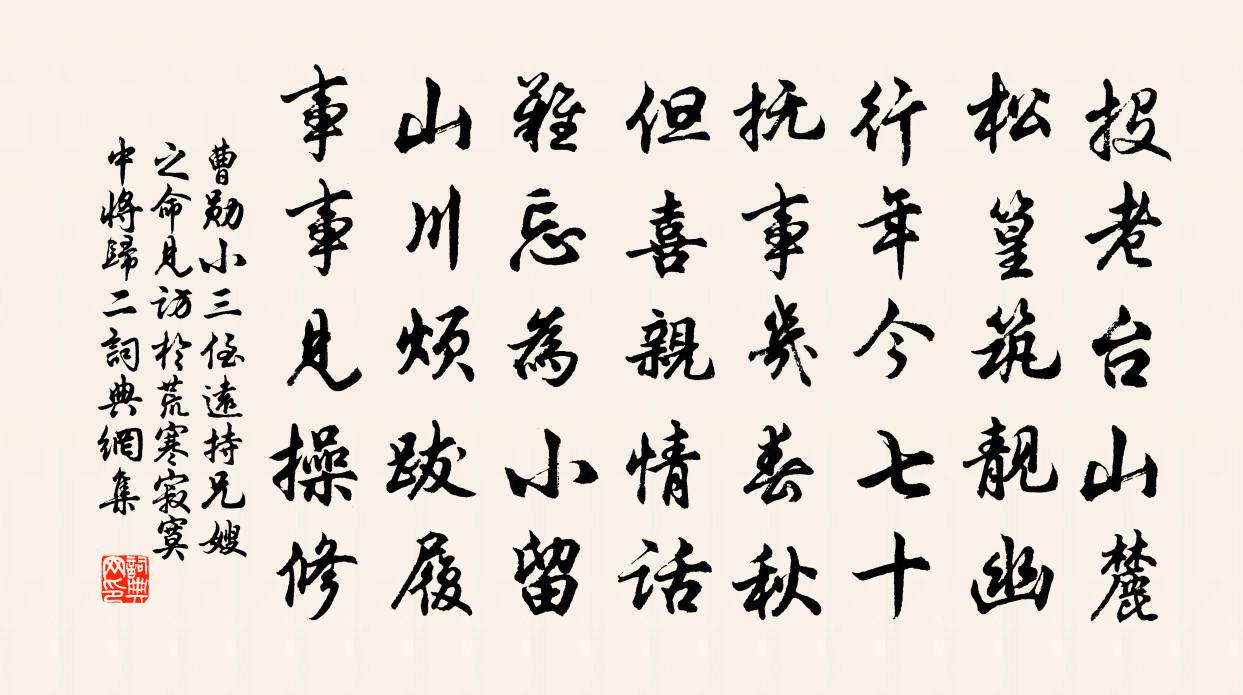 投老台山麓
松篁筑靓幽
行年今七十
抚事几春秋
但喜親情话
難忘為小留
山川烦跋履
事事見操修
曹勋小三侄遠持兄嫂
之命見访於荒寒寂寞
中将歸二詞典網集
詞典网印